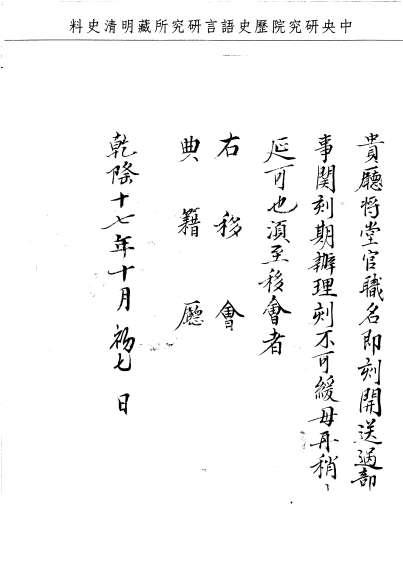 中央研究院歷史語言研究所藏明清史料
貴廳將堂官職名即刻開送過部
事関刻期辦理刻不可緩毋再稍
延可也須至移會者
右移會
典籍廳
乾隆十七年十月初七日